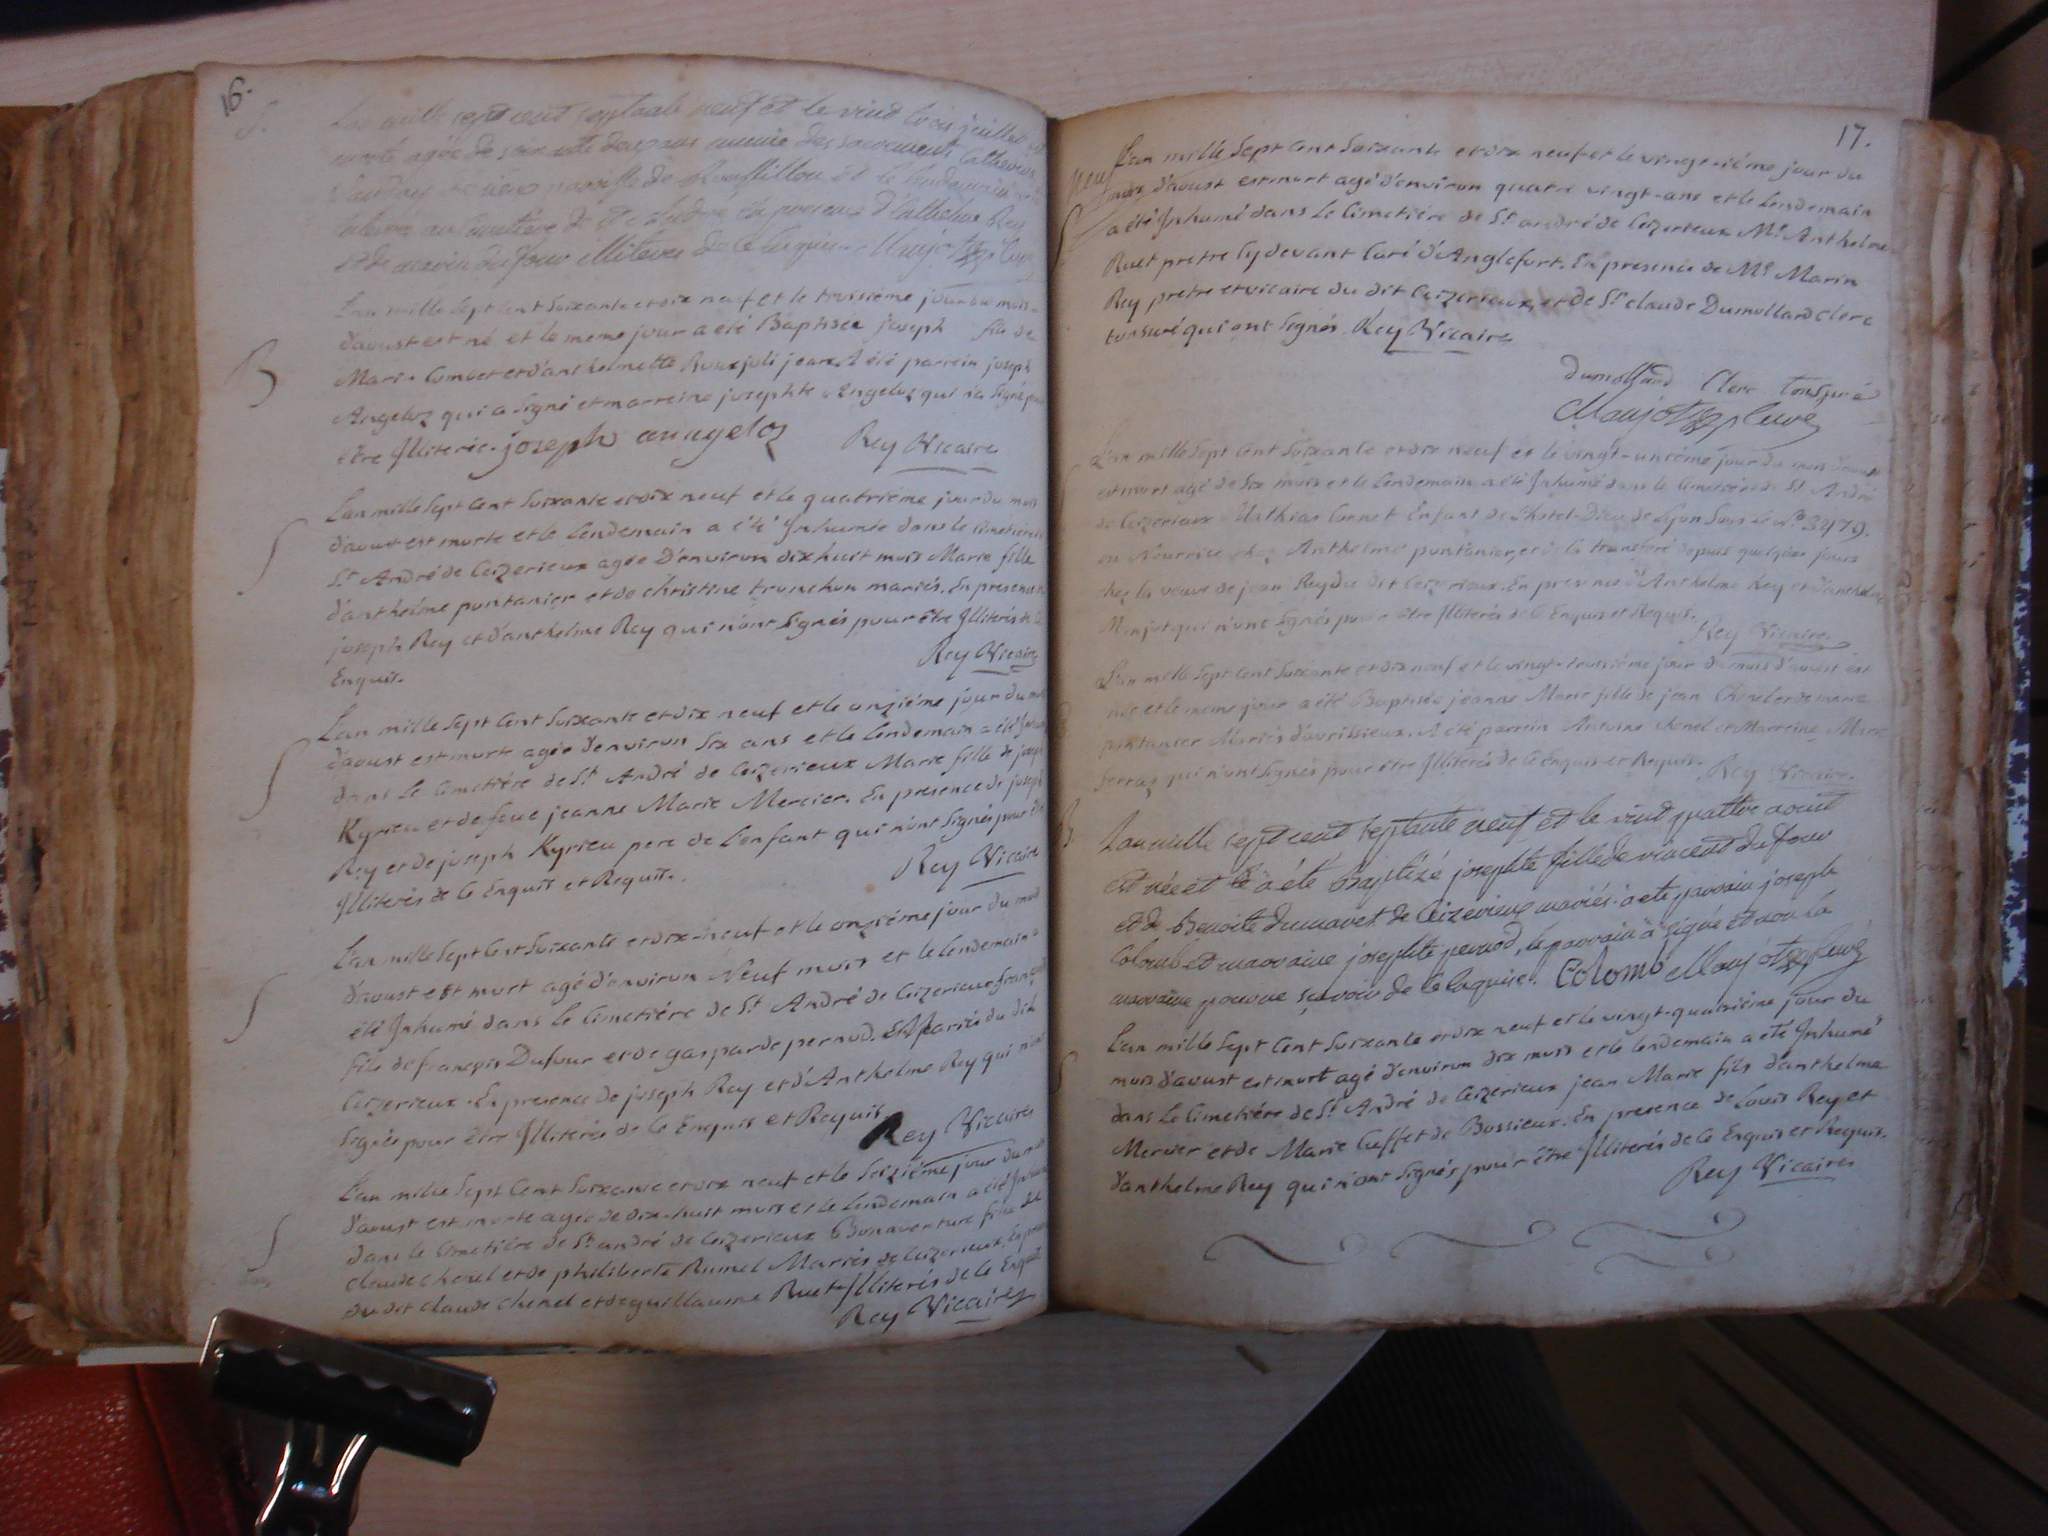 16.
S.
L'an mille sept cent septante neuf et le vint trois juillet est
morte agée de soix munie des sacrements Catherine
paroisse de et le lendemain
au cimetiere de St andré en presence d'Anthelme Rey
et de marin dufour illiteres de ce Enquis. Monjot curé
L'an mille Sept Cent Soixante et dix neuf et le troisième jour du mois
B
d'aoust est né et le meme jour a été Baptisée joseph fils de
Marin Combet et d'anthelmette Roux joli jean. A été parrein joseph
Angeloz qui a Signé et marreine josephte Angeloz qui n'a Signé pour
être Jlliterée. joseph anngeloz Rey Vicaire
L'an mille Sept Cent Soixante et dix neuf et le quatrième jour du mois
S
d'aoust est morte et le Lendemain a été Jnhumée dans le Cimetière de
St André de Ceizerieux agée D'environ dix huit mois Marie fille
d'anthelme pontanier et de christine tronchon mariés. En presence de
joseph Rey et d'anthelme Rey qui n'ont Signés pour être Jlliterés de ce
Enquis. Rey Vicaire
L'an mille Sept Cent Soixante et dix neuf et le onzième jour du mois
S
d'aoust est morte agée d'environ Six ans et le Lendemain a été Jnhumée
dans Le Cimetière de St André de Ceizerieux Marie fille de joseph
Kyrieu et de feue jeanne Marie Mercier. En presence de joseph
Rey et de joseph Kyrieu pere de L'enfant qui n'ont Signés pour être
Jlliterés de ce Enquis et Requis. Rey Vicaire
L'an mille Sept Cent Soixante et dix-neuf et le onzième jour du mois
S
d'aoust est mort agé d'environ Neuf mois et le Lendemain a
été Jnhumé dans Le Cimetière de St André de Ceizerieux françois
fils de françois Dufour et de gasparde pernod. Mariés du dit
Ceizerieux. En presence de joseph Rey et d'Anthelme Rey qui n'ont
Signés pour être Jlliterés de ce Enquis et Requis. Rey Vicaire
L'an mille Sept Cent Soixante et dix neuf et le Seizième jour du mois
S
d'aoust est morte agée de dix-huit mois et le Lendemain a été Jnhumée
dans le Cimetière de St andré de Ceizerieux Bonaventure fille de
claude chenel et de philiberte Rumel Mariés de Ceizerieux. En presence
du dit claude chenel et de guillaume Ruet Jlliterés de ce Enquis
Rey Vicaire
17.
L'an mille Sept Cent Soixante et dix neuf et le vingt-ième jour du
neuf
mois d'aoust est mort agé d'environ quatre vingt-ans et le Lendemain
S
a été Jnhumé dans Le Cimetière de St andré de Ceizerieux Mr Anthelme
Ruet pretre Cy devant Curé d'Anglefort. En presence de Mr Marin
Rey pretre et vicaire du dit Ceizerieux, et de Sr claude Dumollard clerc
tonsuré qui ont Signés. Rey Vicaire
Dumollard Clerc tonsuré
Monjot curé
L'an mille Sept Cent Soixante et dix neuf et le vingt-unième jour du mois d'aoust
est mort agé de Six mois et le Lendemain a été Jnhumé dans le Cimetière de St André
de Ceizerieux Mathias Cornet Enfant de L'hotel-Dieu de Lyon Sous Le No 32479.
en Nourrice chez Anthelme pontanier, et de là transferé depuis quelques jours
chez la veuve de jean Rey du dit Ceizerieux. En presence d'Anthelme Rey et d'anthelme
Monjot qui n'ont Signés pour être Jlliterés de ce Enquis et Requis.
Rey Vicaire
L'an mille Sept Cent Soixante et dix neuf et le vingt-troisième jour du mois d'aoust est
née et le meme jour a été Baptisée jeanne Marie fille de jean Chenel et de marie
pontanier Mariés d'avrissieux. A été parrein Antoine chenel et Marreine Marie
Serraz qui n'ont Signés pour être Jlliterés de ce Enquis et Requis. Rey Vicaire.
B.
L'an mille sept cent septante neuf et le vint quattre aout
est née et a éte Baptizé josephte fille de vincent dufour
et de Benoite dumaret de Ceizerieux mariés. a ete parrain joseph
Colomb et marraine josephte pernod, le parrain a signé et non la
marraine pour ne sçavoir de ce Enquise. Colomb Monjot curé
L'an mille Sept Cent Soixante et dix neuf et le vingt-quatrième jour du
S
mois d'aoust est mort agé d'environ dix mois et le lendemain a été Jnhumé
dans Le Cimetière de St André de Ceizerieux jean Marie fils d'anthelme
Mercier et de Marie Cuffet de Bossieux. En presence de Louis Rey et
d'anthelme Rey qui n'ont Signés pour être Jlliterés de ce Enquis et Requis.
Rey Vicaire